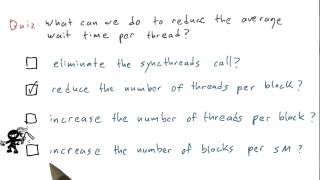 Quiz What can we do to reduce the average
wait time per thread?
eliminate the syncthreads call?
reduce the number of threads per block?
increase the number of threads per block?
increase the number of blocks per SM?